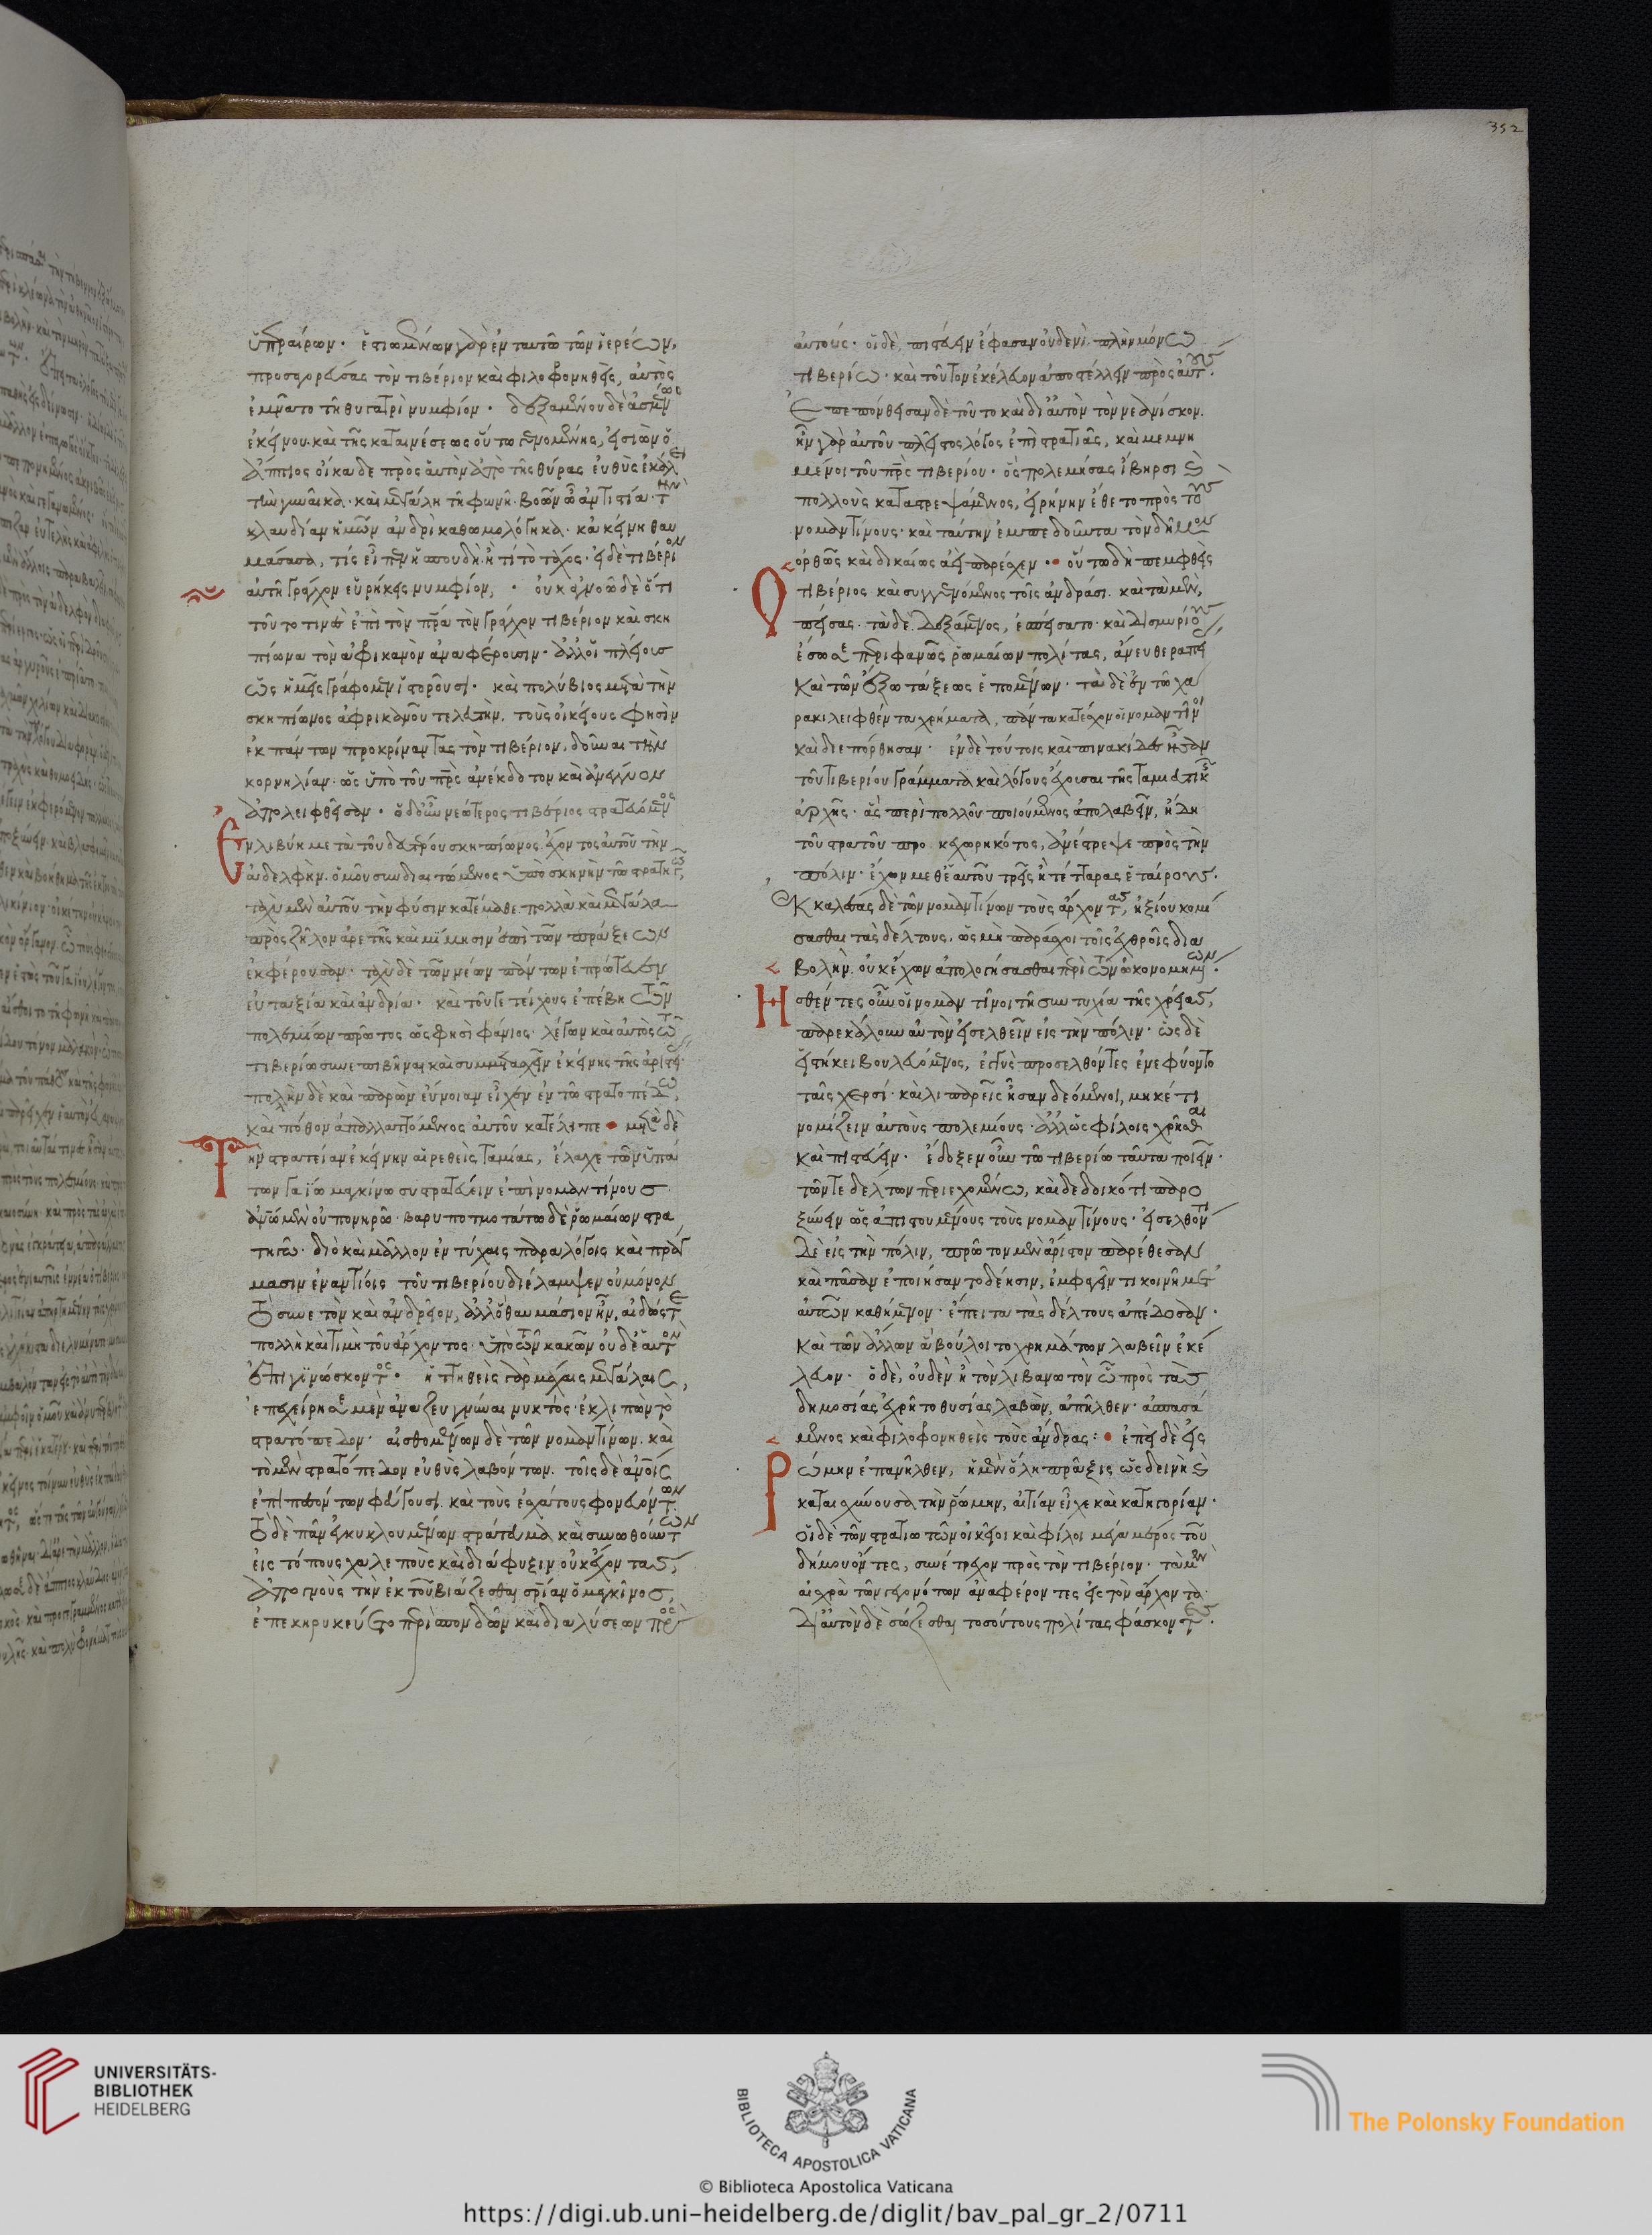 ὑπεραίρων. ἑστιωμένων γὰρ ἐν ταυτῶ τῶν ἱερέων,
προσαγορεύσας τὸν τιβέριον καὶ φιλοφρονηθεὶς, αὐτὸς
ἐμνᾶτο τῆ θυγατρὶ νυμφίον. δεξαμένου δὲ ἀσμένως
ἐκείνου. καὶ τῆς καταινέσεως οὕτω γενομένης, εἰσιὼν ὁ
ἄππιος οἴκαδε πρὸς αὑτὸν ἀπὸ τῆς θύρας εὐθὺς ἐκάλει
τὴν γυναῖκα. καὶ μεγάλη τῆ φωνῆ. βοῶν ὦ ἀντιστία. τὴν
κλαυδίαν ἡμῶν ἀνδρὶ καθωμολόγηκα. κἀκείνη θαυ
μάσασα, τίς εἶπεν ἡ σπουδὴ. ἢ τί τὸ τάχος. εἰ δὲ τιβέριον
αὐτῆ γράγχον εὑρήκεις νυμφίον; οὐκ ἀγνοῶ δὲ ὅτι
τοῦτο τινὲς ἐπὶ τὸν πατέρα τὸν γράγχον τιβέριον καὶ σκη
πίωνα τὸν ἀφρικανὸν ἀναφέρουσιν. ἀλλ' οἱ πλείους
ὡς ἡμεῖς γράφομεν ἱστοροῦσι. καὶ πολύβιος μετὰ τὴν
σκηπίωνος ἀφρικανοῦ τελευτὴν, τοὺς οἰκείους φησὶν
ἐκ πάντων προκρίναντας τὸν τιβέριον, δοῦναι τὴν
κορνηλίαν. ὡς ὑπὸ τοῦ πατρὸς ἀνέκδοτον καὶ ἀνέγγυον
ἀπολειφθεῖσαν. ὁ δ' οὖν νεώτερος τιβέριος στρατευόμενος
Ἐν λιβύη μετὰ τοῦ δευτέρου σκηπίωνος. ἔχοντος αὐτοῦ τὴν
ἀδελφὴν. ὁμοῦ συνδιαιτώμενος ὑπὸ σκηνὴν τῶ στρατηγῶ,
ταχὺ μὲν αὐτοῦ τὴν φύσιν κατέμαθε. πολλὰ καὶ μεγάλα
πρὸς ζῆλον ἀρετῆς καὶ μίμησιν ἐπὶ τῶν πράξεων
ἐκφέρουσαν. ταχὺ δὲ τῶν νέων πάντων ἐπρώτευεν
εὐταξία καὶ ἀνδρία. καὶ τοῦ γε τείχους ἐπέβη τῶν
πολεμίων πρῶτος ὥς φησὶ φάνιος. λέγων καὶ αὐτὸς τῶ
τιβερίω συνεπιβῆναι καὶ συμμετασχεῖν ἐκείνης τῆς ἀριστείας.
πολλὴν δὲ καὶ παρὼν εὔνοιαν εἶχεν ἐν τῶ στρατοπέδω,
καὶ πόθον ἀπαλλαττόμενος αὐτοῦ κατέλιπε. μετὰ δὲ
Τὴν στρατείαν ἐκείνην αἱρεθεὶς ταμίας, ἔλαχε τῶν ὑπά
των γαΐω μαγκίνω συστρατεύειν ἐπὶ νομαντίνους.
ἀνθρώπω μὲν οὐ πονηρῶ. βαρυποτμοτάτω δὲ ῥωμαίων στρα
τηγῶ. διὸ καὶ μᾶλλον ἐν τύχαις παραλόγοις καὶ πράγ
μασιν ἐναντίοις τοῦ τιβερίου διέλαμψεν οὐ μόνον
τὸ συνετὸν καὶ ἀνδρεῖον, ἀλλ' ὃ θαυμάσιον ἦν, αἰδώς τε
πολλὴ καὶ τιμὴ τοῦ ἄρχοντος. ὑπὸ τῶν κακῶν οὐδὲ ἑαυτὸν
ἐπιγϊνώσκοντος. ἡττηθεὶς γὰρ μάχαις μεγάλαις,
ἐπεχείρησε μὲν ἀναζευγνύναι νυκτός. ἐκλιπὼν τὸ
στρατόπεδον. αἰσθομένων δὲ τῶν νομαντίνων. καὶ
τὸ μὲν στρατόπεδον εὐθὺς λαβόντων. τοῖς δὲ ἀνθρώποις
ἐπιπεσόντων φεύγουσι. καὶ τοὺς ἐσχάτους φονευόντων.
τὸ δὲ πᾶν ἐγκυκλουμένων στράτευμα καὶ συνωθούντων
εἰς τόπους χαλεποὺς καὶ διάφυξιν οὐκ ἔχοντας,
ἀπογνοὺς τὴν ἐκ τοῦ βιάζεσθαι σωτηρίαν ὁ μαγκῖνος,
ἐπεκηρυκεύετο περὶ σπονδῶν καὶ διαλύσεων πρὸς
352
αὐτούς. οἱ δὲ, πιστεύειν ἔφασαν οὐδενὶ. πλὴν μόνω
τιβερίω. καὶ τοῦτον ἐκέλευον ἀποστέλλειν πρὸς αὐτούς.
Ἐπεπόνθεσαν δὲ τοῦτο καὶ δι' αὐτὸν τὸν νεανίσκον.
ἦν γὰρ αὐτοῦ πλεῖστος λόγος ἐπὶ στρατιᾶς, καὶ μεμνη
μένοι τοῦ πατρὸς τιβερίου. ὃς πολεμήσας ἴβηρσι καὶ
πολλοὺς καταστρεψάμενος, εἰρήνην ἔθετο πρὸς τοὺς
νομαντίνους. καὶ ταύτην ἐμπεδοῦντα τὸν δῆμον
ὀρθῶς καὶ δικαίως ἀεὶ παρέσχεν. οὕτω δὴ πεμφθεὶς
Ο τιβέριος καὶ συγγενόμενος τοῖς ἀνδράσι. καὶ τὰ μὲν,
πείσας. τὰ δὲ δεξάμενος, ἐσπείσατο. καὶ δισμυρίους
ἔσωσε περιφανῶς ῥωμαίων πολίτας, ἄνευ θεραπεί
καὶ τῶν ἔξω τάξεως ἑπομένων. τὰ δὲ ἐν τῶ χα
ρακι λειφθέντα χρήματα, πάντα κατέσχον οἱ νομαντῖνοι
καὶ διεπόρθησαν. ἐν δὲ τούτοις καὶ πινακίδες ἦσαν
τοῦ τιβερίου γράμματα καὶ λόγους ἔχουσαι τῆς ταμιευτικῆς
ἀρχῆς. ἃς περὶ πολλοῦ ποιούμενος ἀπολαβεῖν, ἤδη
τοῦ στρατοῦ προκεχωρηκότος, ἀνέστρεψε πρὸς τὴν
πόλιν. ἔχων μεθ' ἑαυτοῦ τρεῖς ἢ τέτταρας ἑταίρους.
Ἐκκαλέσας δὲ τῶν νομαντίνων τοὺς ἄρχοντας, ἠξίου κομί
σασθαι τὰς δέλτους. ὡς μὴ παράσχοι τοῖς ἐχθροῖς δια
βολὴν. οὐκ ἔχων ἀπολογήσασθαι περὶ τῶν ὠκονομημένων.
Ησθέντες οὖν οἱ νομαντῖνοι τῆ συντυχία τῆς χρείας,
παρεκάλουν αὐτὸν εἰσελθεῖν εἰς τὴν πόλιν. ὡς δὲ
εἱστήκει βουλευόμενος, ἐγγὺς προσελθόντες ἐνεφύοντο
ταῖς χερσί. καὶ λιπαρεῖς ἦσαν δεόμενοι, μηκέτι
νομίζειν αὐτοὺς πολεμίους. ἀλλ' ὡς φίλοις χρῆσθαι
καὶ πιστεύειν. ἔδοξεν οὖν τῶ τιβερίω ταῦτα ποιεῖν.
τῶν τε δέλτων περιεχομένω, καὶ δεδοικότι παρο
ξύνειν ὡς ἀπιστουμένους τοὺς νομαντίνους. εἰσελθόντι
δὲ εἰς τὴν πόλιν, πρῶτον μὲν ἄριστον παρέθεσαν
καὶ πᾶσαν ἐποιήσαντο δέησιν, ἐμφαγεῖν τι κοινῆ μετ'
αὐτῶν καθήμενον. ἔπειτα τὰς δέλτους ἀπέδοσαν.
καὶ τῶν ἄλλων ἃ βούλοιτο χρημάτων λαβεῖν ἐκέ
λευον. ὁ δὲ, οὐδὲν ἢ τὸν λιβανωτὸν ὧ πρὸς τὰς
δημοσίας ἐχρῆτο θυσίας λαβὼν, ἀπῆλθεν. ἀσπασά
μενος καὶ φιλοφρονηθεὶς τοὺς ἄνδρας: ἐπεὶ δὲ εἰς
Ρώμην ἐπανῆλθεν, ἡ μὲν ὅλη πρᾶξις ὡς δεινὴ καὶ
καταισχύνουσα τὴν ῥώμην, αἰτίαν εἶχε καὶ κατηγορίαν.
οἱ δὲ τῶν στρατιωτῶν οἰκεῖοι καὶ φίλοι μέγα μέρος τοῦ
δήμου ὄντες, συνέτρεχον πρὸς τὸν τιβέριον. τὰ μὲν
αἰσχρὰ τῶν γεγονότων ἀναφέροντες εἰς τὸν ἄρχοντα.
δι' αὐτὸν δὲ σώζεσθαι τοσούτους πολίτας φάσκοντες.
UNIVERSITÄTS-
BIBLIOTHEK
HEIDELBERG
BIBLIOTECA APOSTOLICA VATICANA
The Polonsky Foundation
© Biblioteca Apostolica Vaticana
https://digi.ub.uni-heidelberg.de/diglit/bav_pal_gr_2/0711